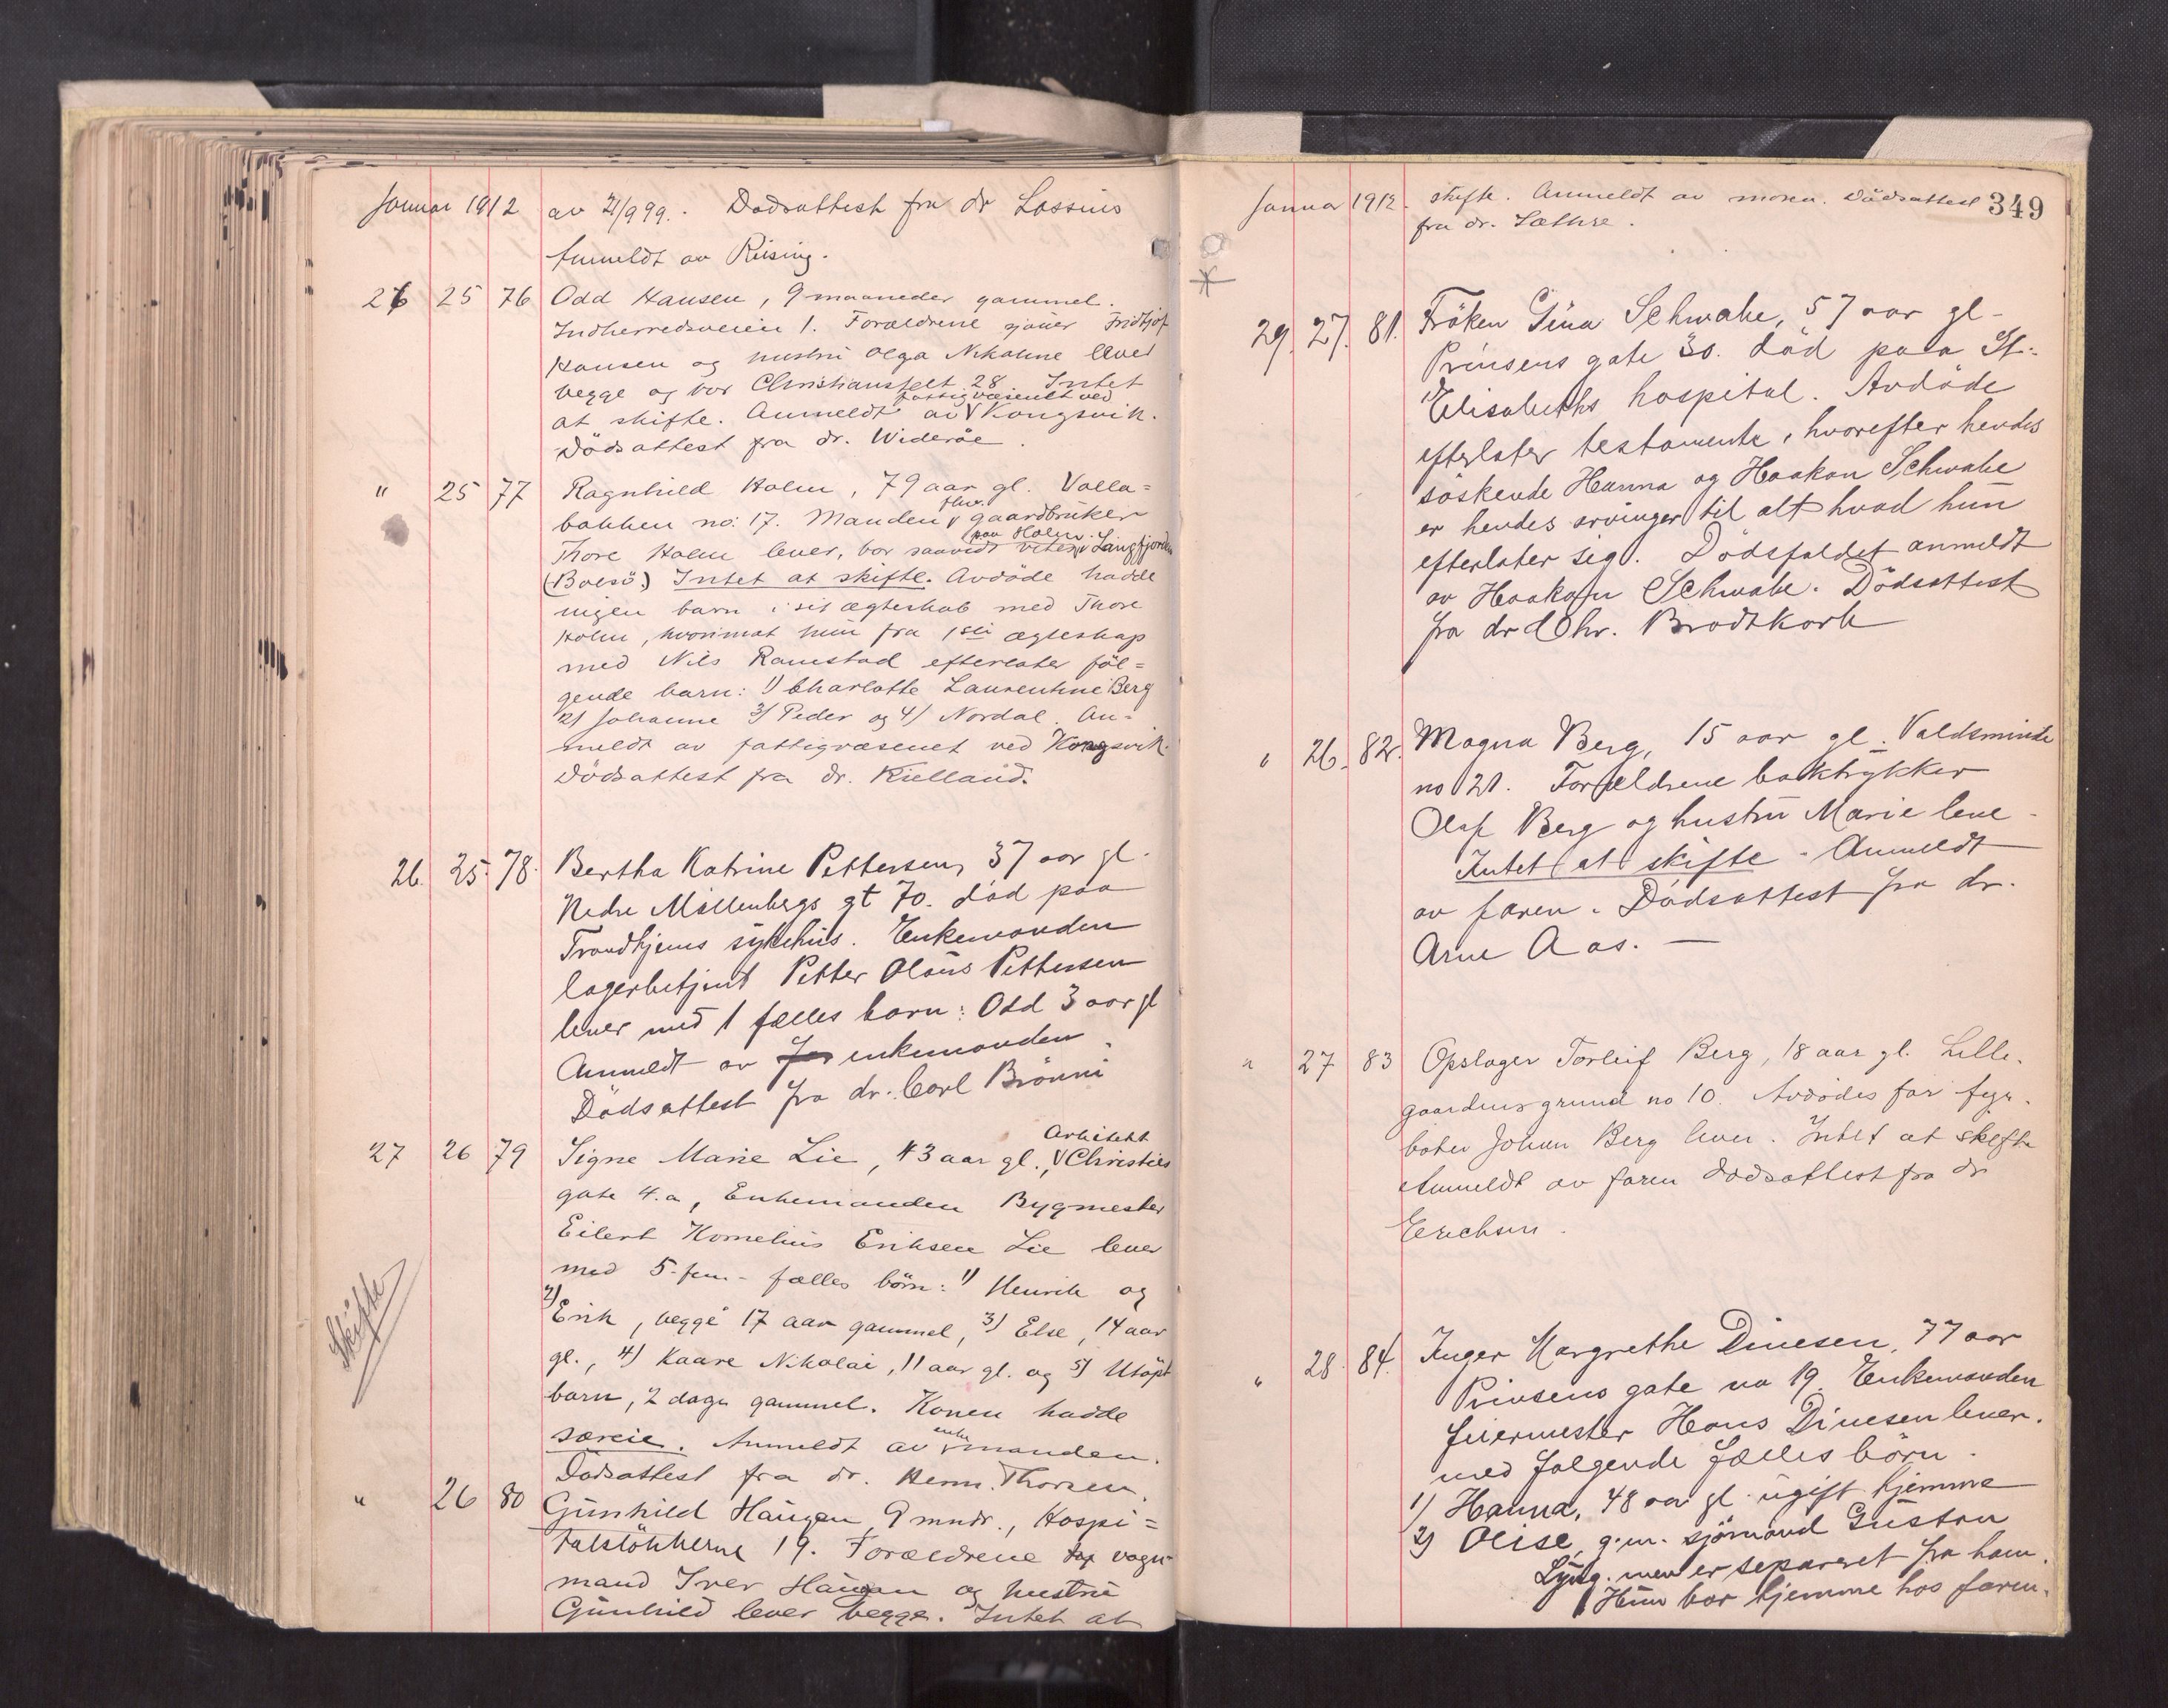 Januar 1912 av 21/9 99. Dødsattest fra dr Lossius
Anmeldt av Riising.
26 25 76 Odd Hansen, 9 maaneder gammel.
Indherredsveien 1. Forældrene sjauer Fridtjof
Hansen og hustru Olga Nikoline lever
begge og bor Christiansfelt 28. Intet
at skifte. Anmeldt av fattigvæsenet ved Kongsvik.
Dødsattest fra dr. Widerøe.
" 25 77 Ragnhild Holm, 79 aar gl. Volla=
bakken no: 17. Manden fhv. gaardbruker
Thore Holm lever, bor saavidt vites paa Holm. Langfjorden
(Bolsø.) Intet at skifte. Avdøde hadde
ingen barn i sit ægteskab med Thore
Holm, hvorimot hun fra 1ste ægteskap
med Nils Ramstad efterlater føl=
gende barn: 1) Charlotte Laurentine Berg
2) Johanne 3) Peder og 4) Nordal. An=
meldt av fattigvæsenet ved Kongsvik.
Dødsattest fra dr. Kielland.
26. 25. 78. Bertha Katrine Pettersen, 37 aar gl.
Nedre Møllenbergs gt 70. død paa
Trondhjems sykehus. Enkemanden
lagerbetjent Petter Olaus Pettersen
lever med 1 fælles barn: Odd 3 aar gl
Anmeldt av enkemanden.
Dødsattest fra dr. Carl Brønni
27 26 79 Signe Marie Lie, 43 aar gl., Arkitekt Christies
gate 4.a, Enkemanden Bygmester
Eilert Kornelius Eriksen Lie lever
med 5-fem- fælles børn: 1) Henrik og
2) Erik, begge 17 aar gammel, 3) Else, 14 aar
gl., 4) Kaare Nikolai, 11 aar gl. og 5) Utøpt
barn, 2 dage gammel. Konen hadde
særeie. Anmeldt av enkemanden.
Dødsattest fra dr. Herm. Thorsen.
Skifte
" 26 80 Gunhild Haugen 9 mndr., Hospi=
talsløkkerne 19. Forældrene vogn=
mand Iver Haugen og hustru
Gunhild lever begge. Intet at
Januar 1912. skifte. Anmeldt av moren. Dødsattest 349
fra dr. Sæthre.
29. 27. 81. Frøken Gina Schwabe, 57 aar gl.
Prinsens gate 30. død paa St.
Elisabeths hospital. Avdøde
efterlater testamente, hvorefter hendes
søskende Hanna og Haakon Schwabe
er hendes arvinger til alt hvad hun
efterlater sig. Dødsfaldet anmeldt
av Haakon Schwabe. Dødsattest
fra dr Chr. Brodtkorb
" 26. 82. Magna Berg, 15 aar gl. Valdsminde
no 21. Forældrene boktrykker
Olaf Berg og hustru Marie leve.
Intet at skifte. Anmeldt
av faren. Dødsattest fra dr.
Arne Aas. —
" 27 83 Opslager Torleif Berg, 18 aar gl. Lille-
gaardens grund no 10. Avdødes far fyr-
bøter Johan Berg lever. Intet at skifte
Anmeldt av faren Dødsattest fra dr
Erichsen.
" 28. 84. Inger Margrethe Dinesen, 77 aar
Prinsens gate no 19. Enkemanden
feiermester Hans Dinesen lever.
med følgende fælles børn.
1) Hanna, 48 aar gl. ugift hjemme
2) Olise, g.m. sjømand Gustav
Lyng. men er separeret fra ham.
Hun bor hjemme hos faren.